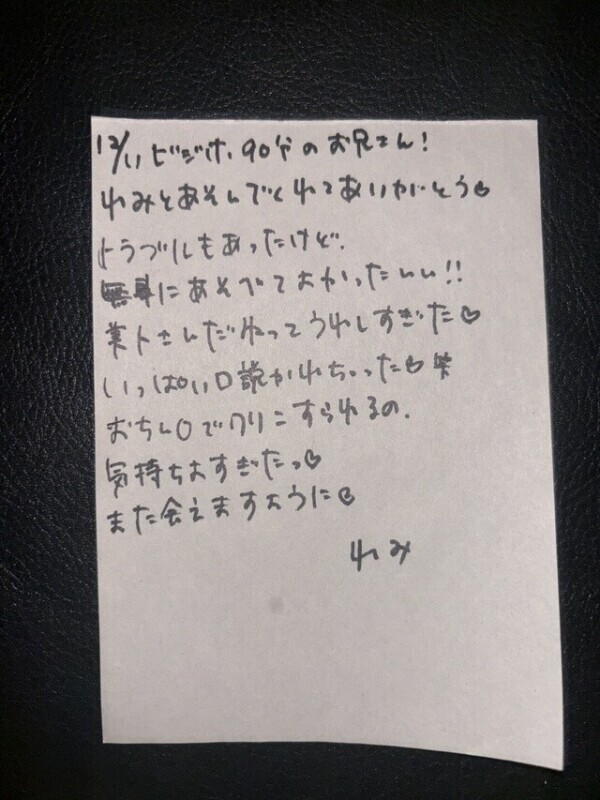 12/11 ビジホ 90分のお兄さん!
れみとあそんでくれてありがとう♡
トラブルもあったけど、
無事にあそべてよかったしい!!
素人さんだねってうれしすぎた♡
いっぱい口説かれちゃった♡笑
おちん〇でクリこすられるの、
気持ちよすぎたっ♡
また会えますように♡
れみ